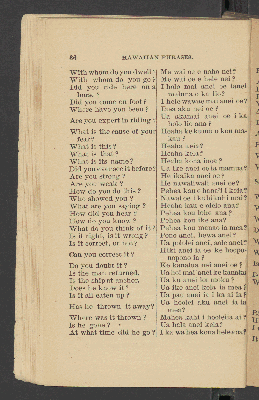 86 HAWAIIAN PHRASES.
With whom do you dwell? Me wai oe e noho nei?
With whom do you go? Me wai oe e hele nei?
Did you ride here on a I holo mai anei oe
horse? maluna o ka lio?
Did you come on foot? I hele wawae mai anei oe?
Where have you been? Ihea aku nei oe?
Are you expert in riding? Ua akamai anei oe i ka
holo lio ana?
What is the cause of your Heaha ke kumu o kou
fear?
What is this? Heaha keia?
What is that? Heaha kela?
What is its name? Heaha kona inoa?
Did you see me it before? Ua ike anei oe ia mamua?
Are you strong? He ikaika anei oe?
Are you weak? He nawaliwali anei oe?
How do you do this? Pehea kau e hana'i i keia?
Who showed you? Nawai oe i kuhikuhi
What are you saying? Heaha kau e olelo nei?
How did you hear? Pehea kou lohe ana?
How do you know? Pehea kou ike ana?
What do you think of it? Pehea kou manao ia mea?
Is it right, is it wrong? Pono anei, hewa anei?
Is it correct, or not? Ua pololei anei, aole anei?
Can you correct it? Hiki anei ia oe ke hooponopono
Do you doubt it? Ke kanalua nei anei oe?
Is the man returned. Ua hoi mai anei ke kanaka
Is the ship at anchor.
Does he know it? Ua ike anei kela ia mea?
Is it all eaten up? Ua pau anei i ka ai ia?
Has he thrown it away? Ua hoolei aku anei ia ia
mea?
Where was it thrown? Mahea kahi i hoolei ia ai?
Is he gone? Ua hele anei kela?
At what time did he go? I ka wa hea kona hele ana?